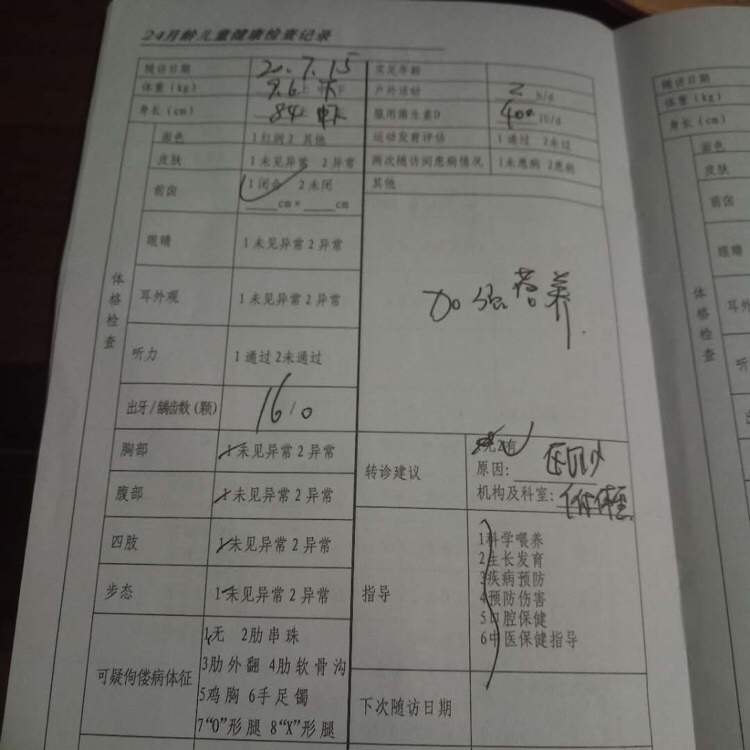 24月龄儿童健康检查记录
随访日期 20.7.15 实足年龄
体重（kg） 9.6 下 户外活动 2 h/d
身长（cm） 84 服用维生素D 400 IU/d
面色 1红润2 其他 运动发育评估 1 通过 2未过
皮肤 1 未见异常 2 异常 两次随访间患病情况 1未患病 2患病
前囟 1 闭合 2 未闭 其他
cm× cm
眼睛 1 未见异常 2 异常
体格检查
耳外观 1 未见异常 2 异常 加强营养
听力 1 通过 2未通过
出牙/龋齿数（颗） 16/0
胸部 1 未见异常 2 异常
转诊建议 1无 2有
原因：
腹部 1 未见异常 2 异常 机构及科室：
四肢 1 未见异常 2 异常
步态 1 未见异常 2 异常
指导 1科学喂养
2生长发育
3疾病预防
4预防伤害
5口腔保健
6中医保健指导
可疑佝偻病体征 1无 2肋串珠
3肋外翻 4肋软骨沟
5鸡胸 6手足镯
7“O”形腿 8“X”形腿
下次随访日期
随访日期
体重（kg）
身长（cm）
面色
皮肤
前囟
眼睛
体格检查